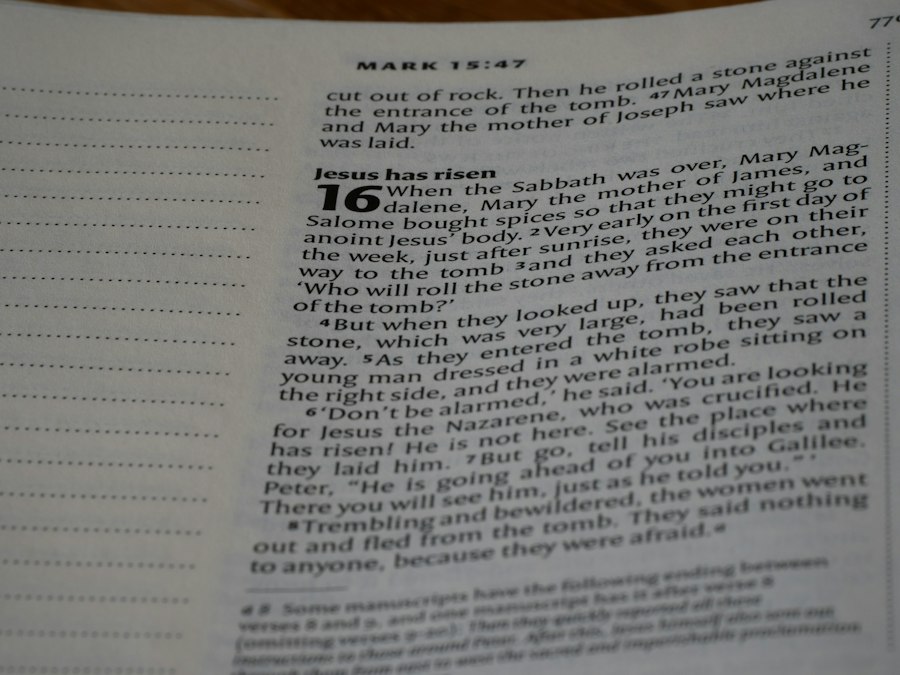 MARK 15:47
cut out of rock. Then he rolled a stone against
the entrance of the tomb. 47 Mary Magdalene
and Mary the mother of Joseph saw where he
was laid.
Jesus has risen
16 When the Sabbath was over, Mary Mag-
dalene, Mary the mother of James, and
Salome bought spices so that they might go to
anoint Jesus' body. 2 Very early on the first day of
the week, just after sunrise, they were on their
way to the tomb 3 and they asked each other,
‘Who will roll the stone away from the entrance
of the tomb?’
4 But when they looked up, they saw that the
stone, which was very large, had been rolled
away. 5 As they entered the tomb, they saw a
young man dressed in a white robe sitting on
the right side, and they were alarmed.
6 ‘Don't be alarmed,’ he said. ‘You are looking
for Jesus the Nazarene, who was crucified. He
has risen! He is not here. See the place where
they laid him. 7 But go, tell his disciples and
Peter, “He is going ahead of you into Galilee.
There you will see him, just as he told you.” ’
8 Trembling and bewildered, the women went
out and fled from the tomb. They said nothing
to anyone, because they were afraid.a
a 8 Some manuscripts have the following ending between
verses 8 and 9, and one manuscript has it after verse 8
(omitting verses 9-20): Then they quickly reported all these
instructions to those around Peter. After this, Jesus himself also sent out
through them from east to west the sacred and imperishable proclamation